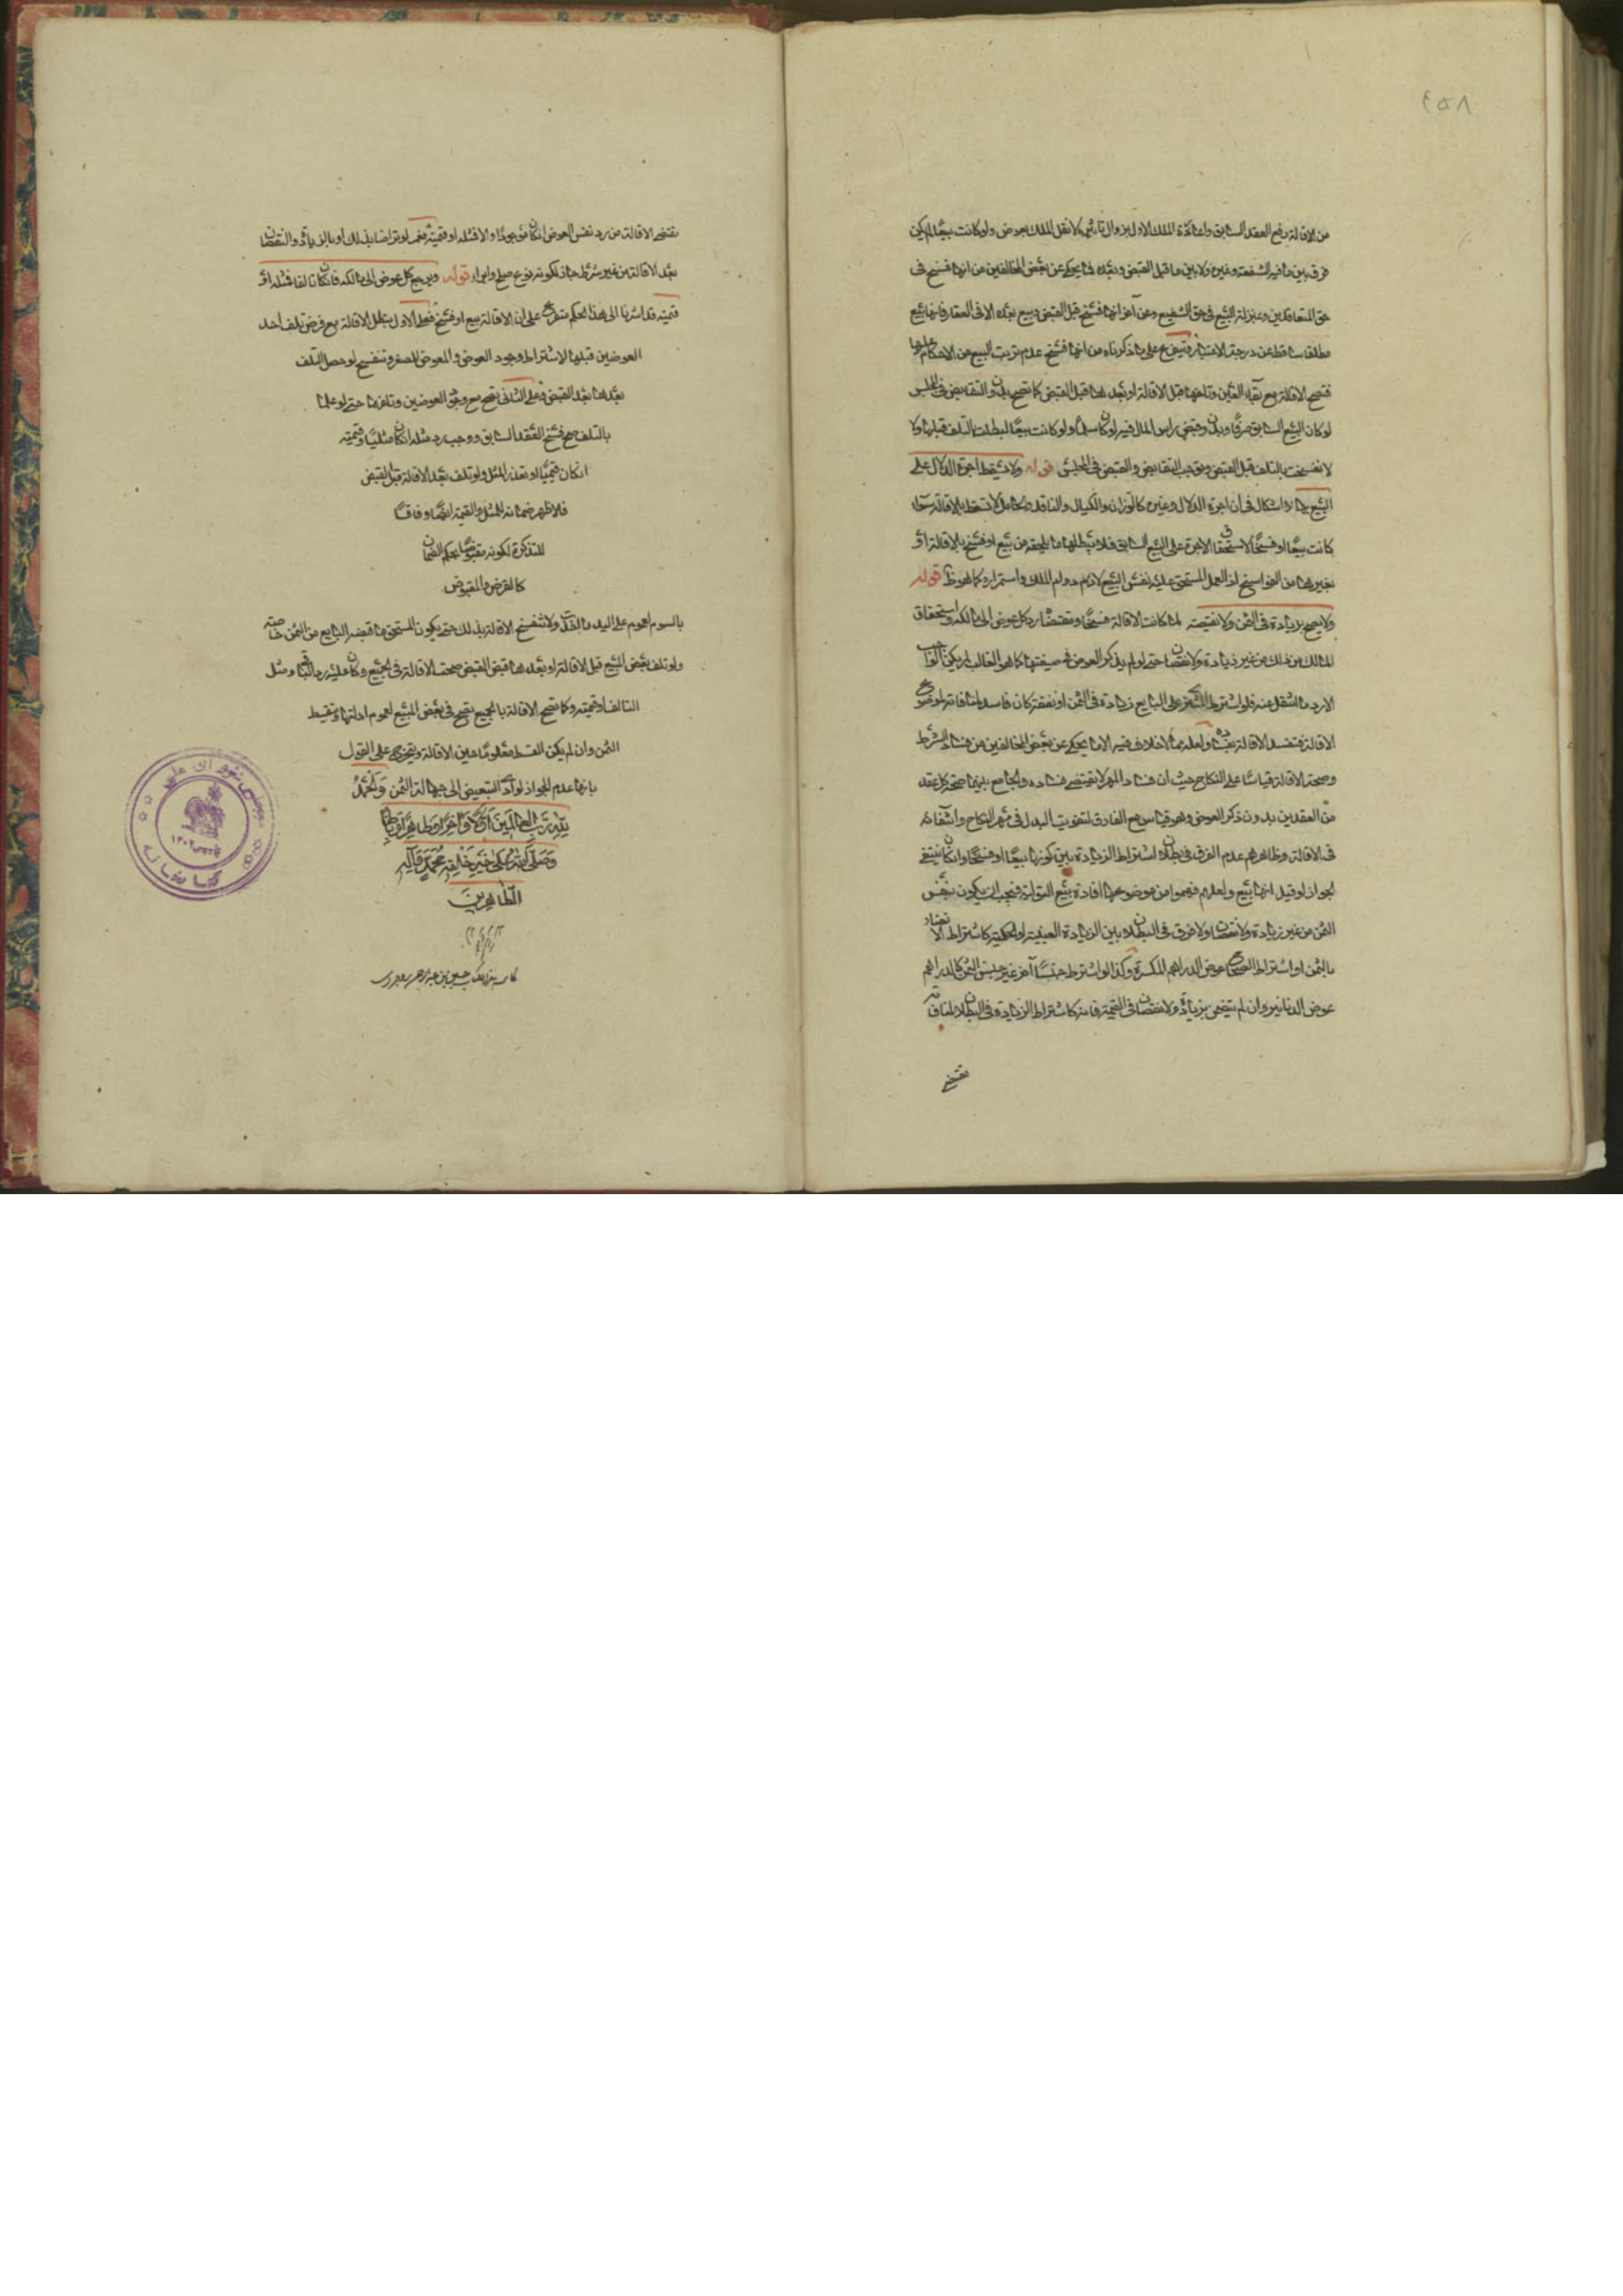 ٤٥٨
من الاقالة رفع العقد السابق واعادة الملك الاول بزوال تاثيره لا نقل الملك بعوض ولو كانت بيعا لم يكن
فرق بين ما فيه الشفعة وغيره ولا بين ما قبل القبض وبعده فما يحكى عن بعض المخالفين من انها فسخ في
حق المتعاقدين وبمنزلة البيع في حق الشفيع وعن آخر انها فسخ قبل القبض وبيع بعده الا في العقار فانها بيع
مطلقا ساقط عن درجة الاعتبار ويتفرع على ما ذكرناه من انها فسخ عدم ترتب البيع من الاحكام عليها
فتصح الاقالة مع بقاء العين وتلفها قبل الاقالة او بعدها قبل القبض كما تصح بدون التقابض في المجلس
لو كان البيع السابق صرفا وبدون قبض راس المال فيه لو كان سلما ولو كانت بيعا لبطلت بالتلف قبلها ولا
لانفسخت بالتلف قبل القبض وتوجب التقابض والقبض في المجلس قوله ولا تسقط اجرة الدلال على
البيع بها لا اشكال في ان اجرة الدلال وغيره كالوزان والكيال والناقد والحامل لا تسقط بالاقالة سواء
كانت بيعا او فسخا لاستحقاق الاجرة على البيع السابق فلا يبطلها ما يلحقه من بيع او فسخ بالاقالة او
بغيرها من الفواسخ اذ العمل المستحق عليه نفس البيع لادام دوام الملك واستمراره كما هو ظ قوله
ولا يصح بزيادة في الثمن ولا نقيصة لما كانت الاقالة فسخا ومقتضاه رد كل عوض الى مالكه واستحقاق
المالك من ذلك من غير زيادة ولا نقصان حتى لو لم يذكر العوض في صيغتها كما هو الغالب لم يكن الواجب
الا رد ما انتقل عنه فلو اشترط المشتري على البايع زيادة في الثمن او نقصه كان فاسدا لمنافاته لموضوع
الاقالة فتفسد الاقالة بفساده ولعله مما لا خلاف فيه الا ما يحكى عن بعض المخالفين من فساد الشرط
وصحة الاقالة قياسا على النكاح حيث ان فساد المهر لا يقتضي فساده والجامع بينهما صحة كل عقد
من العقدين بدون ذكر العوض وهو قياس مع الفارق لتفويت البدل في مهر النكاح وانتفائه
في الاقالة وظاهرهم عدم الفرق في بطلان اشتراط الزيادة بين كونها بيعا او فسخا وان كان ينبغي
الجواز لو قيل انها بيع ولعلهم فهموا من موضوعها افادة بيع التولية فيجب ان يكون بنفس
الثمن من غير زيادة ولا نقصان ولا فرق في البطلان بين الزيادة العينية او الحكمية كاشتراط الانتقاد
بالثمن او اشتراط الصحاح عوض الدراهم المكسرة وكذا لو اشترط جنسا آخر غير جنس الثمن كالدراهم
عوض الدنانير وان لم يتضمن بزيادة ولا نقصان في القيمة فانه كاشتراط الزيادة في البطلان لمنافاته
مقتضى
مقتضى الاقالة من رد نفس العوض ان كان موجودا والا فمثله او قيمته نعم لو تراضيا بذلك او بالزيادة والنقصان
بعد الاقالة من غير شرط جاز لكونه نوع صلح وابراء قوله ويرجع كل عوض الى مالكه فان كان تالفا فمثله او
قيمته قد اشرنا الى هذا الحكم متفرع على ان الاقالة بيع او فسخ فعلى الاول تبطل الاقالة مع فرض تلف احد
العوضين قبلها لاشتراط وجود العوض والمعوض للصفر وتنفسخ لو حصل التلف
بعدها بعد القبض فعلى الثاني تصح مع وجود العوضين وتلفهما حتى لو علما
بالتلف صح فسخ العقد السابق ووجب رد مثله ان كان مثليا وقيمته
ان كان قيميا او تعذر المثل ولو تلف بعد الاقالة قبل القبض
فالاظهر ضمانه المثل والقيمة ايضا وفاقا
للتذكرة لكونه مقبوضا بحكم الضمان
كالقرض والمقبوض
بالسوم لعموم على اليد ما اخذت ولا تنفسخ الاقالة بذلك حتى يكون المستحق ما قبضه البايع من الثمن خاصته
ولو تلف بعض المبيع قبل الاقالة او بعدها قبض القبض صحت الاقالة في الجميع وكان عليه رد الباقي ومثل
التالف او قيمته وكما تصح الاقالة بالجميع تصح في بعض المبيع لعموم ادلتها ويتقسط
الثمن وان لم يكن القسط معلوما حين الاقالة ويتخرج على القول
بانها عدم الجواز لو ادى التبعيض الى جهالة الثمن والحمد
لله رب العالمين اولا واخرا وظاهرا وباطنا
وصلى الله على خير خلقه محمد وآله
الطاهرين
مجلس شورای ملی
کتابخانه
تاسیس ١٣٠٢